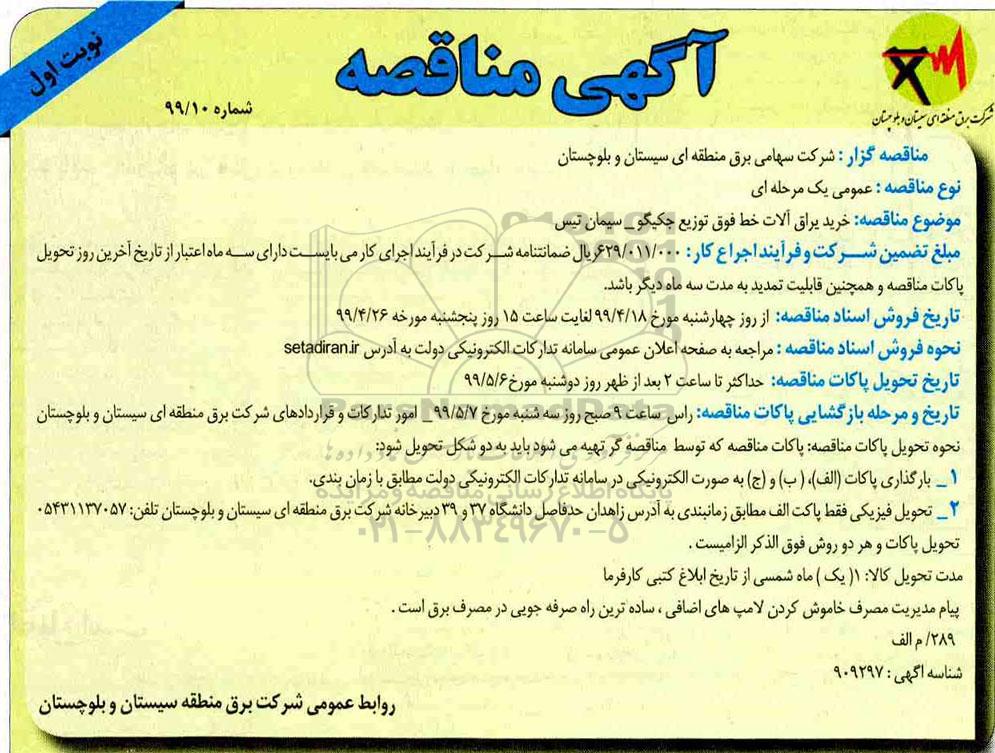 نوبت اول
آگهی مناقصه
شماره ۹۹/۱۰
شرکت برق منطقه ای سیستان و بلوچستان
مناقصه گزار : شرکت سهامی برق منطقه ای سیستان و بلوچستان
نوع مناقصه : عمومی یک مرحله ای
موضوع مناقصه: خرید یراق آلات خط فوق توزیع چکیگو_ سیمان تیس
مبلغ تضمین شـــرکت و فرآیند اجراع کار : ۶۲۹/۰۱۱/۰۰۰ریال ضمانتنامه شــرکت در فرآیند اجرای کار می بایســت دارای ســه ماه اعتبار از تاریخ آخرین روز تحویل
پاکات مناقصه و همچنین قابلیت تمدید به مدت سه ماه دیگر باشد.
تاریخ فروش اسناد مناقصه: از روز چهارشنبه مورخ ۹۹/۴/۱۸ لغایت ساعت ۱۵ روز پنجشنبه مورخه ۹۹/۴/۲۶
نحوه فروش اسناد مناقصه : مراجعه به صفحه اعلان عمومی سامانه تدارکات الکترونیکی دولت به آدرس setadiran.ir
تاریخ تحویل پاکات مناقصه: حداکثر تا ساعت ۲ بعد از ظهر روز دوشنبه مورخ۹۹/۵/۶
تاریخ و مرحله بازگشایی پاکات مناقصه: راس ساعت ۹ صبح روز سه شنبه مورخ ۹۹/۵/۷_ امور تدارکات و قراردادهای شرکت برق منطقه ای سیستان و بلوچستان
نحوه تحویل پاکات مناقصه: پاکات مناقصه که توسط مناقصه گر تهیه می شود باید به دو شکل تحویل شود:
۱_ بارگذاری پاکات (الف)، ( ب) و (ج) به صورت الکترونیکی در سامانه تدارکات الکترونیکی دولت مطابق با زمان بندی.
۲_ تحویل فیزیکی فقط پاکت الف مطابق زمانبندی به آدرس زاهدان حدفاصل دانشگاه ۳۷ و ۳۹ دبیرخانه شرکت برق منطقه ای سیستان و بلوچستان تلفن: ۰۵۴۳۱۱۳۷۰۵۷
تحویل پاکات و هر دو روش فوق الذکر الزامیست .
مدت تحویل کالا: ۱( یک ) ماه شمسی از تاریخ ابلاغ کتبی کارفرما
پیام مدیریت مصرف خاموش کردن لامپ های اضافی ، ساده ترین راه صرفه جویی در مصرف برق است .
۲۸۹/ م الف
شناسه آگهی : ۹۰۹۲۹۷
روابط عمومی شرکت برق منطقه سیستان و بلوچستان
ParsNamadData
پایگاه اطلاع رسانی مناقصه و مزایده
۰۲۱-۸۸۳۴۹۶۷۰-۵